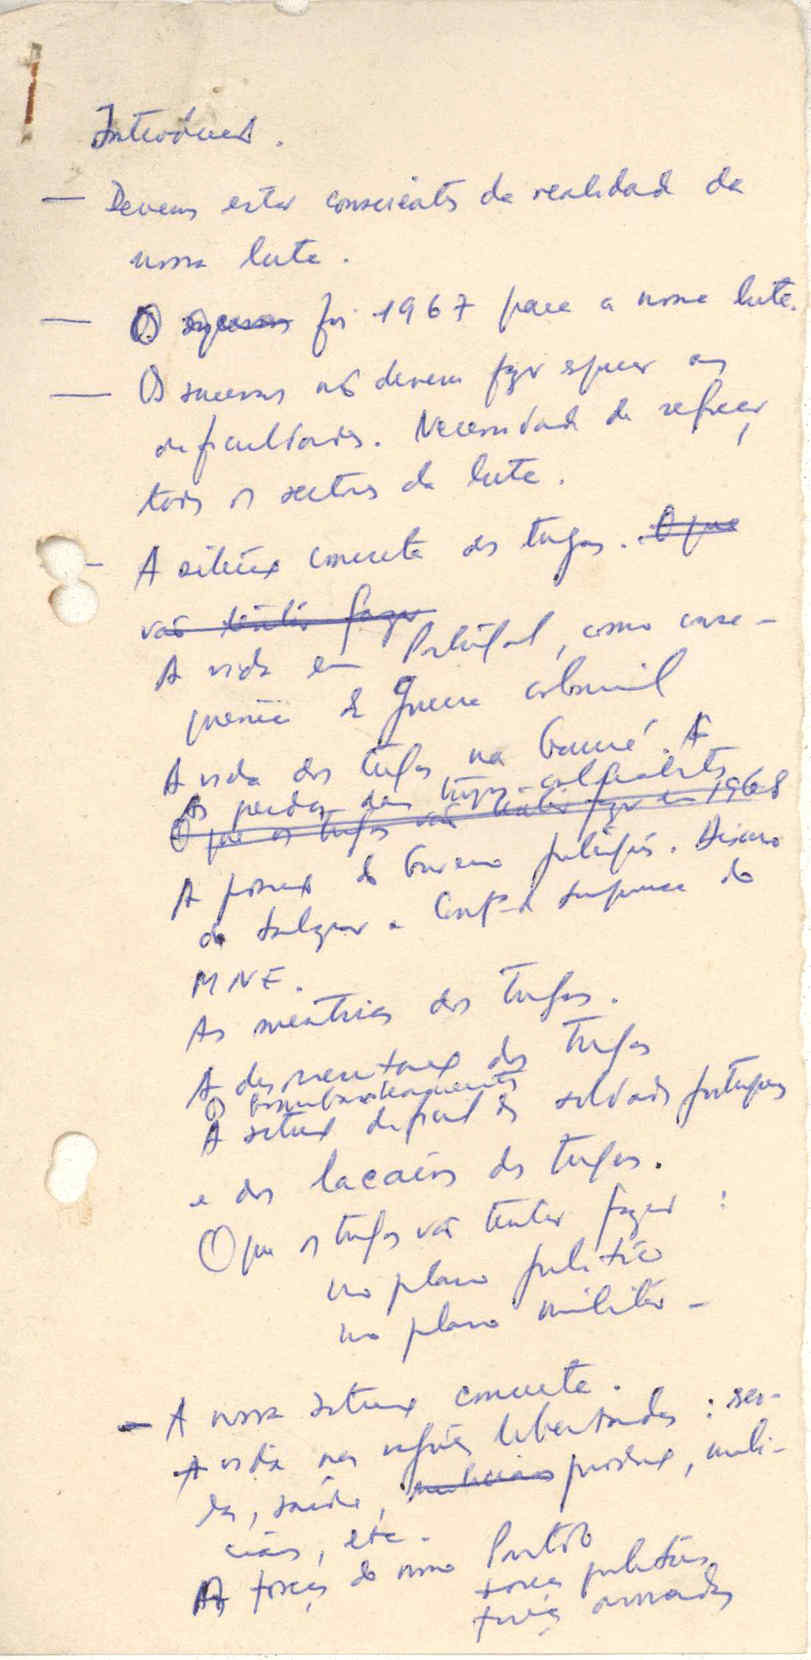 Introdução.
— Devemos estar conscientes da realidade da
nossa luta.
— O que foi 1967 para a nossa luta.
— Os sucessos não devem fazer esquecer as
dificuldades. Necessidade de reforçar
todos os sectores da luta.
- A situação concreta dos tugas. O que
vão tentar fazer
A vida em Portugal, como conse-
quência da guerra colonial
A vida dos tugas na Guiné. A
As perdas dos tugas
O que os tugas vão tentar fazer em 1968
A posição do Governo português. Discurso
de Salazar e Conf-a imprensa do
MNE.
As mentiras dos tugas.
A desorientação dos tugas
Os bombardeamentos
A situação difícil dos soldados portugueses
e dos lacaios dos tugas.
O que os tugas vão tentar fazer:
no plano político
no plano militar -
- A nossa situação concreta.
A vida nas regiões libertadas:
saúde, produção, milí-
cias, etc.
As forças do nosso Partido
forças políticas
forças armadas